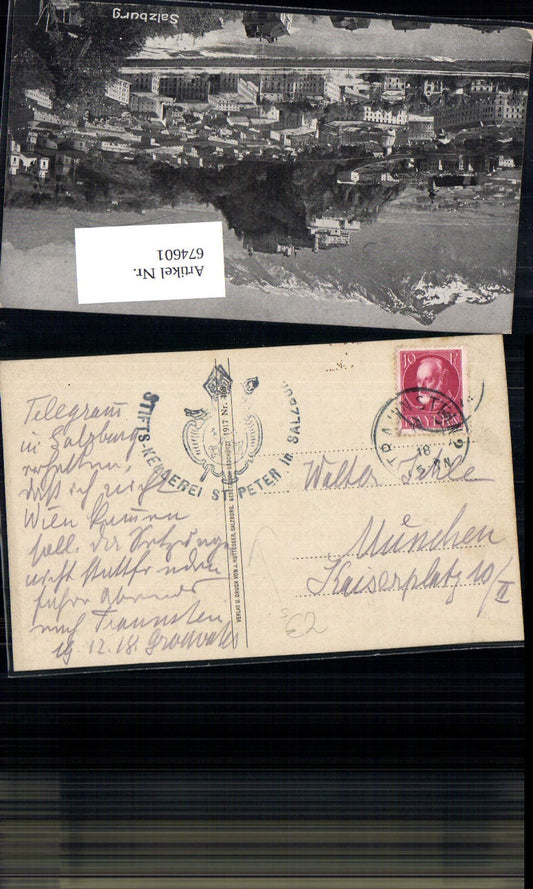 Salzburg
Artikel Nr.
674601
Telegramm
in Salzburg
erhalten,
daß ich nicht
Wien kommen
soll, da Sitzung
nicht stattfinden
fahre abends
nach Traunstein
19.12.18.
STIFTS-KELLEREI ST. PETER in SALZBURG
VERLAG U. DRUCK VON J. HUTTEGGER, SALZBURG.
1917 Nr.
10 PF
BAYERN
TRAUNSTEIN 2
18
Walter
München
Kaiserplatz 10/II
£2